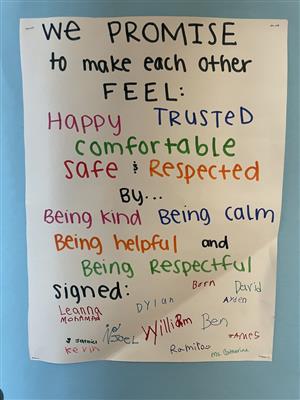 We PROMISE
to make each other
FEEL:
Happy TRUSTED
comfortable
safe & Respected
By...
Being kind Being calm
Being helpful and
Being Respectful
signed: Born David
Leanna Dylan Ayden
Mohammad
Joel William Ben James
Kevin Ramitao Ms. Catherine